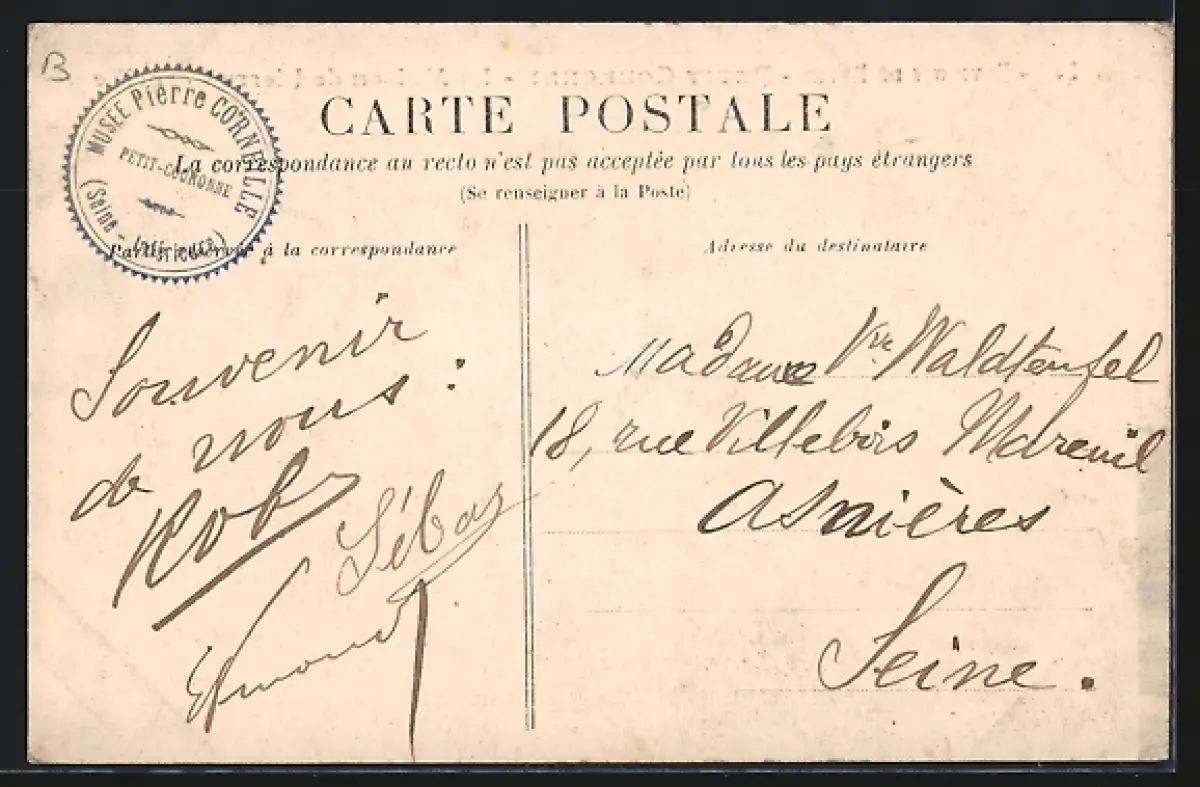 B
MUSÉE Pierre CORNEILLE
PETIT-COURONNE
(Seine - Inférieure)
CARTE POSTALE
La correspondance au recto n'est pas acceptée par tous les pays étrangers
(Se renseigner à la Poste)
Partie réservée à la correspondance
Souvenir
de nous :
Rob
Sébas
Edmond
Adresse du destinataire
Madame Vve Waldteufel
18, rue Villebois Mareuil
Asnières
Seine.